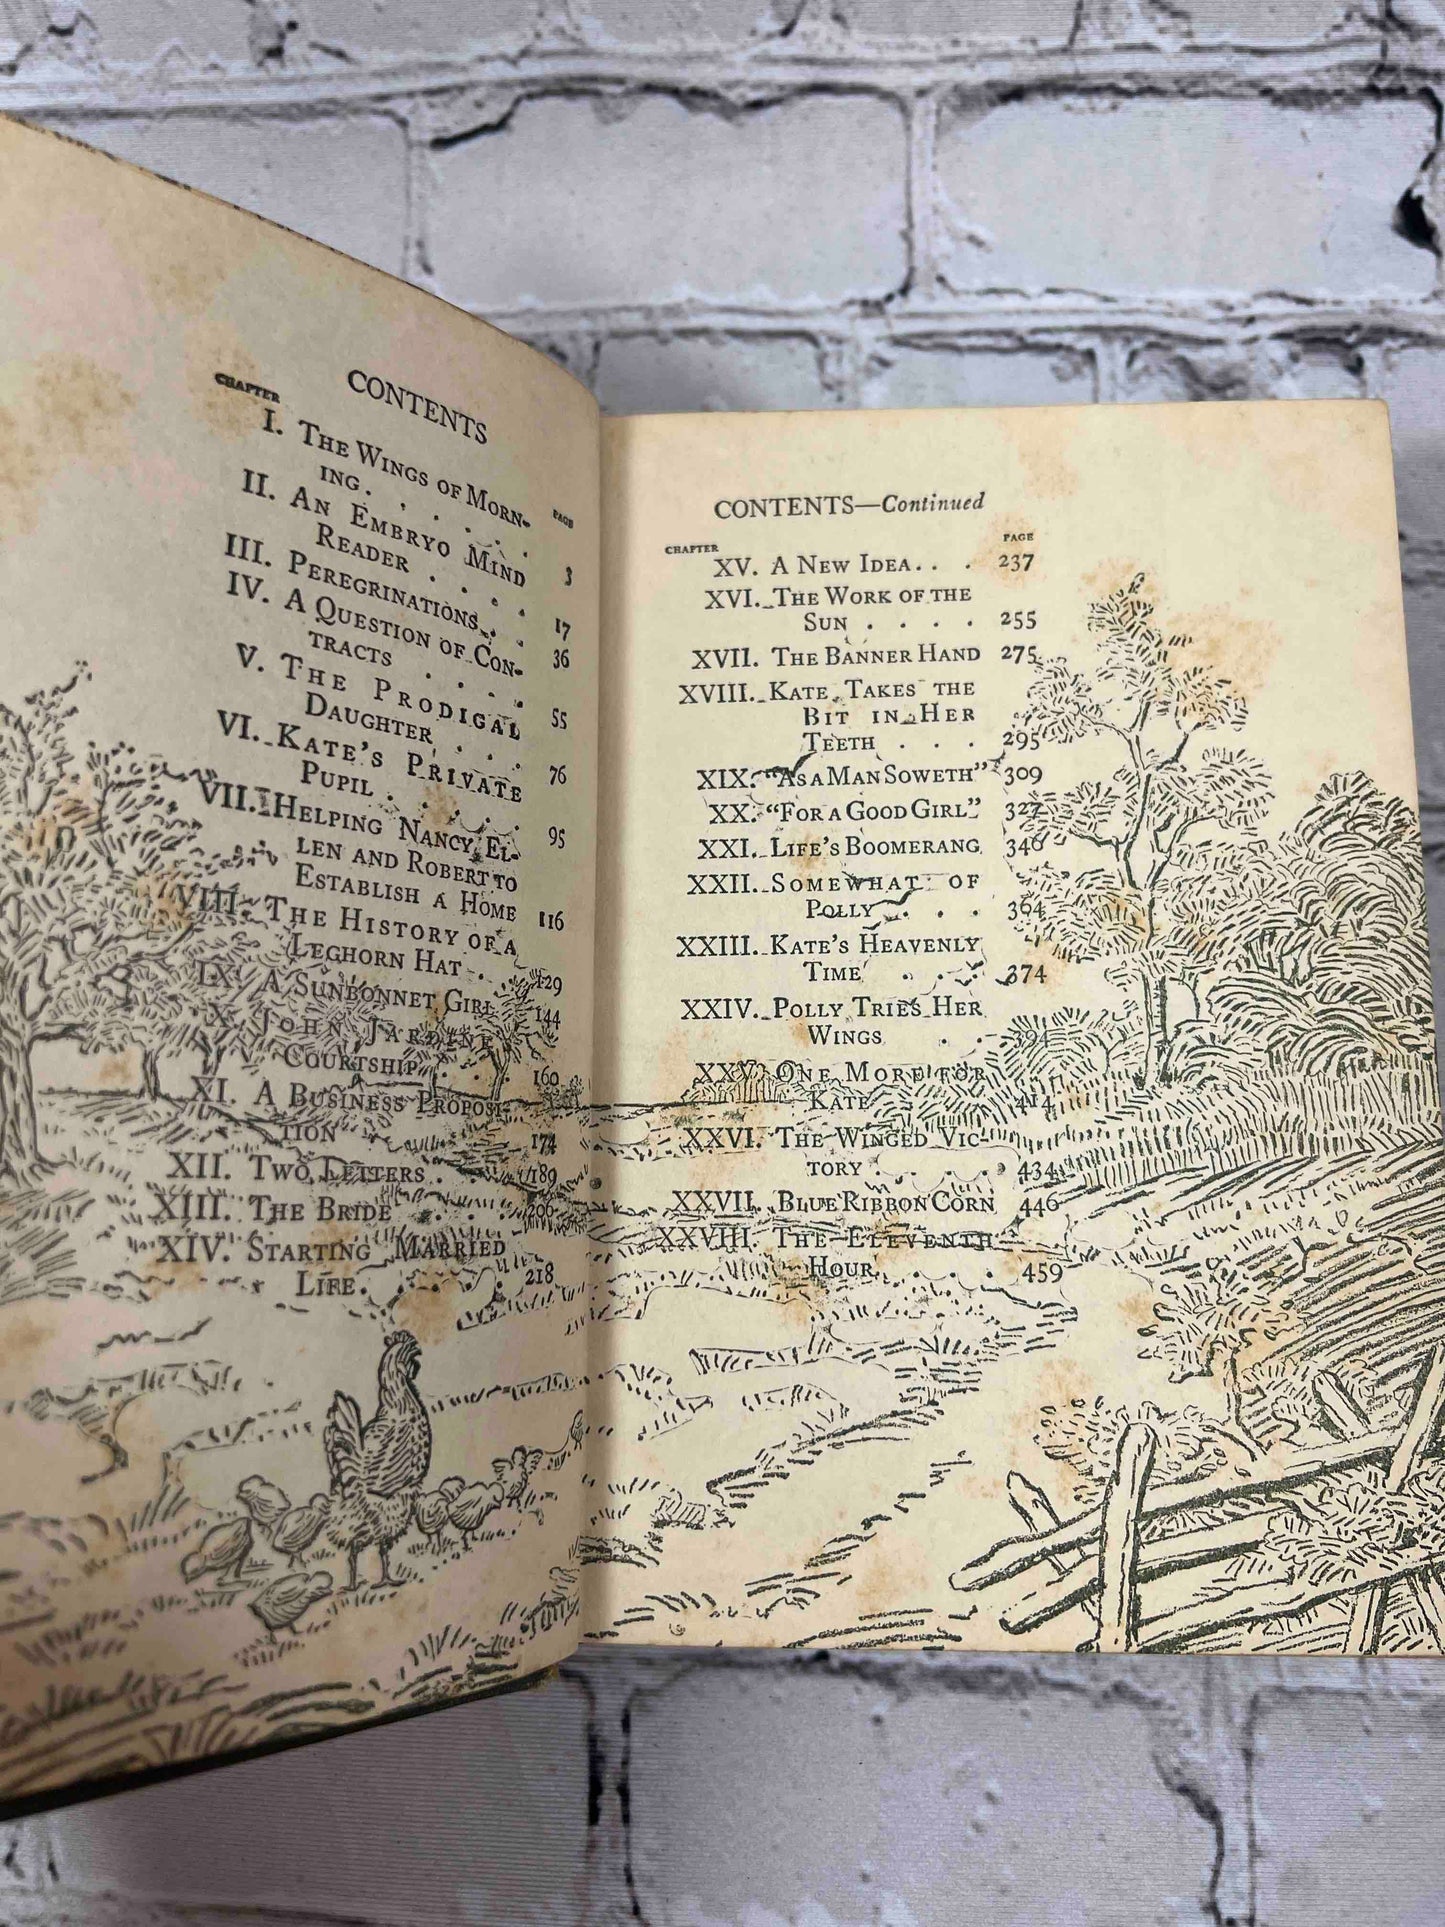 CONTENTS
CHAPTER
PAGE
I. THE WINGS OF MORN-
ING . . . . . . 3
II. AN EMBRYO MIND
READER . . . . 17
III. PEREGRINATIONS . . 36
IV. A QUESTION OF CON-
TRACTS . . . . 55
V. THE PRODIGAL
DAUGHTER . . . 76
VI. KATE'S PRIVATE
PUPIL . . . . . 95
VII. HELPING NANCY EL-
LEN AND ROBERT TO
ESTABLISH A HOME 116
VIII. THE HISTORY OF A
LEGHORN HAT . . 129
IX. A SUNBONNET GIRL 144
X. JOHN JARDINE'S
COURTSHIP . . . 160
XI. A BUSINESS PROPOSI-
TION . . . . . 174
XII. TWO LETTERS . . . 189
XIII. THE BRIDE . . . . 206
XIV. STARTING MARRIED
LIFE . . . . . 218
CONTENTS—Continued
CHAPTER PAGE
XV. A NEW IDEA . . . 237
XVI. THE WORK OF THE
SUN . . . . 255
XVII. THE BANNER HAND 275
XVIII. KATE TAKES THE
BIT IN HER
TEETH . . . 295
XIX. "AS A MAN SOWETH" 309
XX. "FOR A GOOD GIRL" 327
XXI. LIFE'S BOOMERANG 346
XXII. SOMEWHAT OF
POLLY . . . 364
XXIII. KATE'S HEAVENLY
TIME . . . 374
XXIV. POLLY TRIES HER
WINGS . . 394
XXV. ONE MORE FOR
KATE . . . 414
XXVI. THE WINGED VIC-
TORY . . . . 434
XXVII. BLUE RIBBON CORN 446
XXVIII. THE ELEVENTH
HOUR . . . . 459